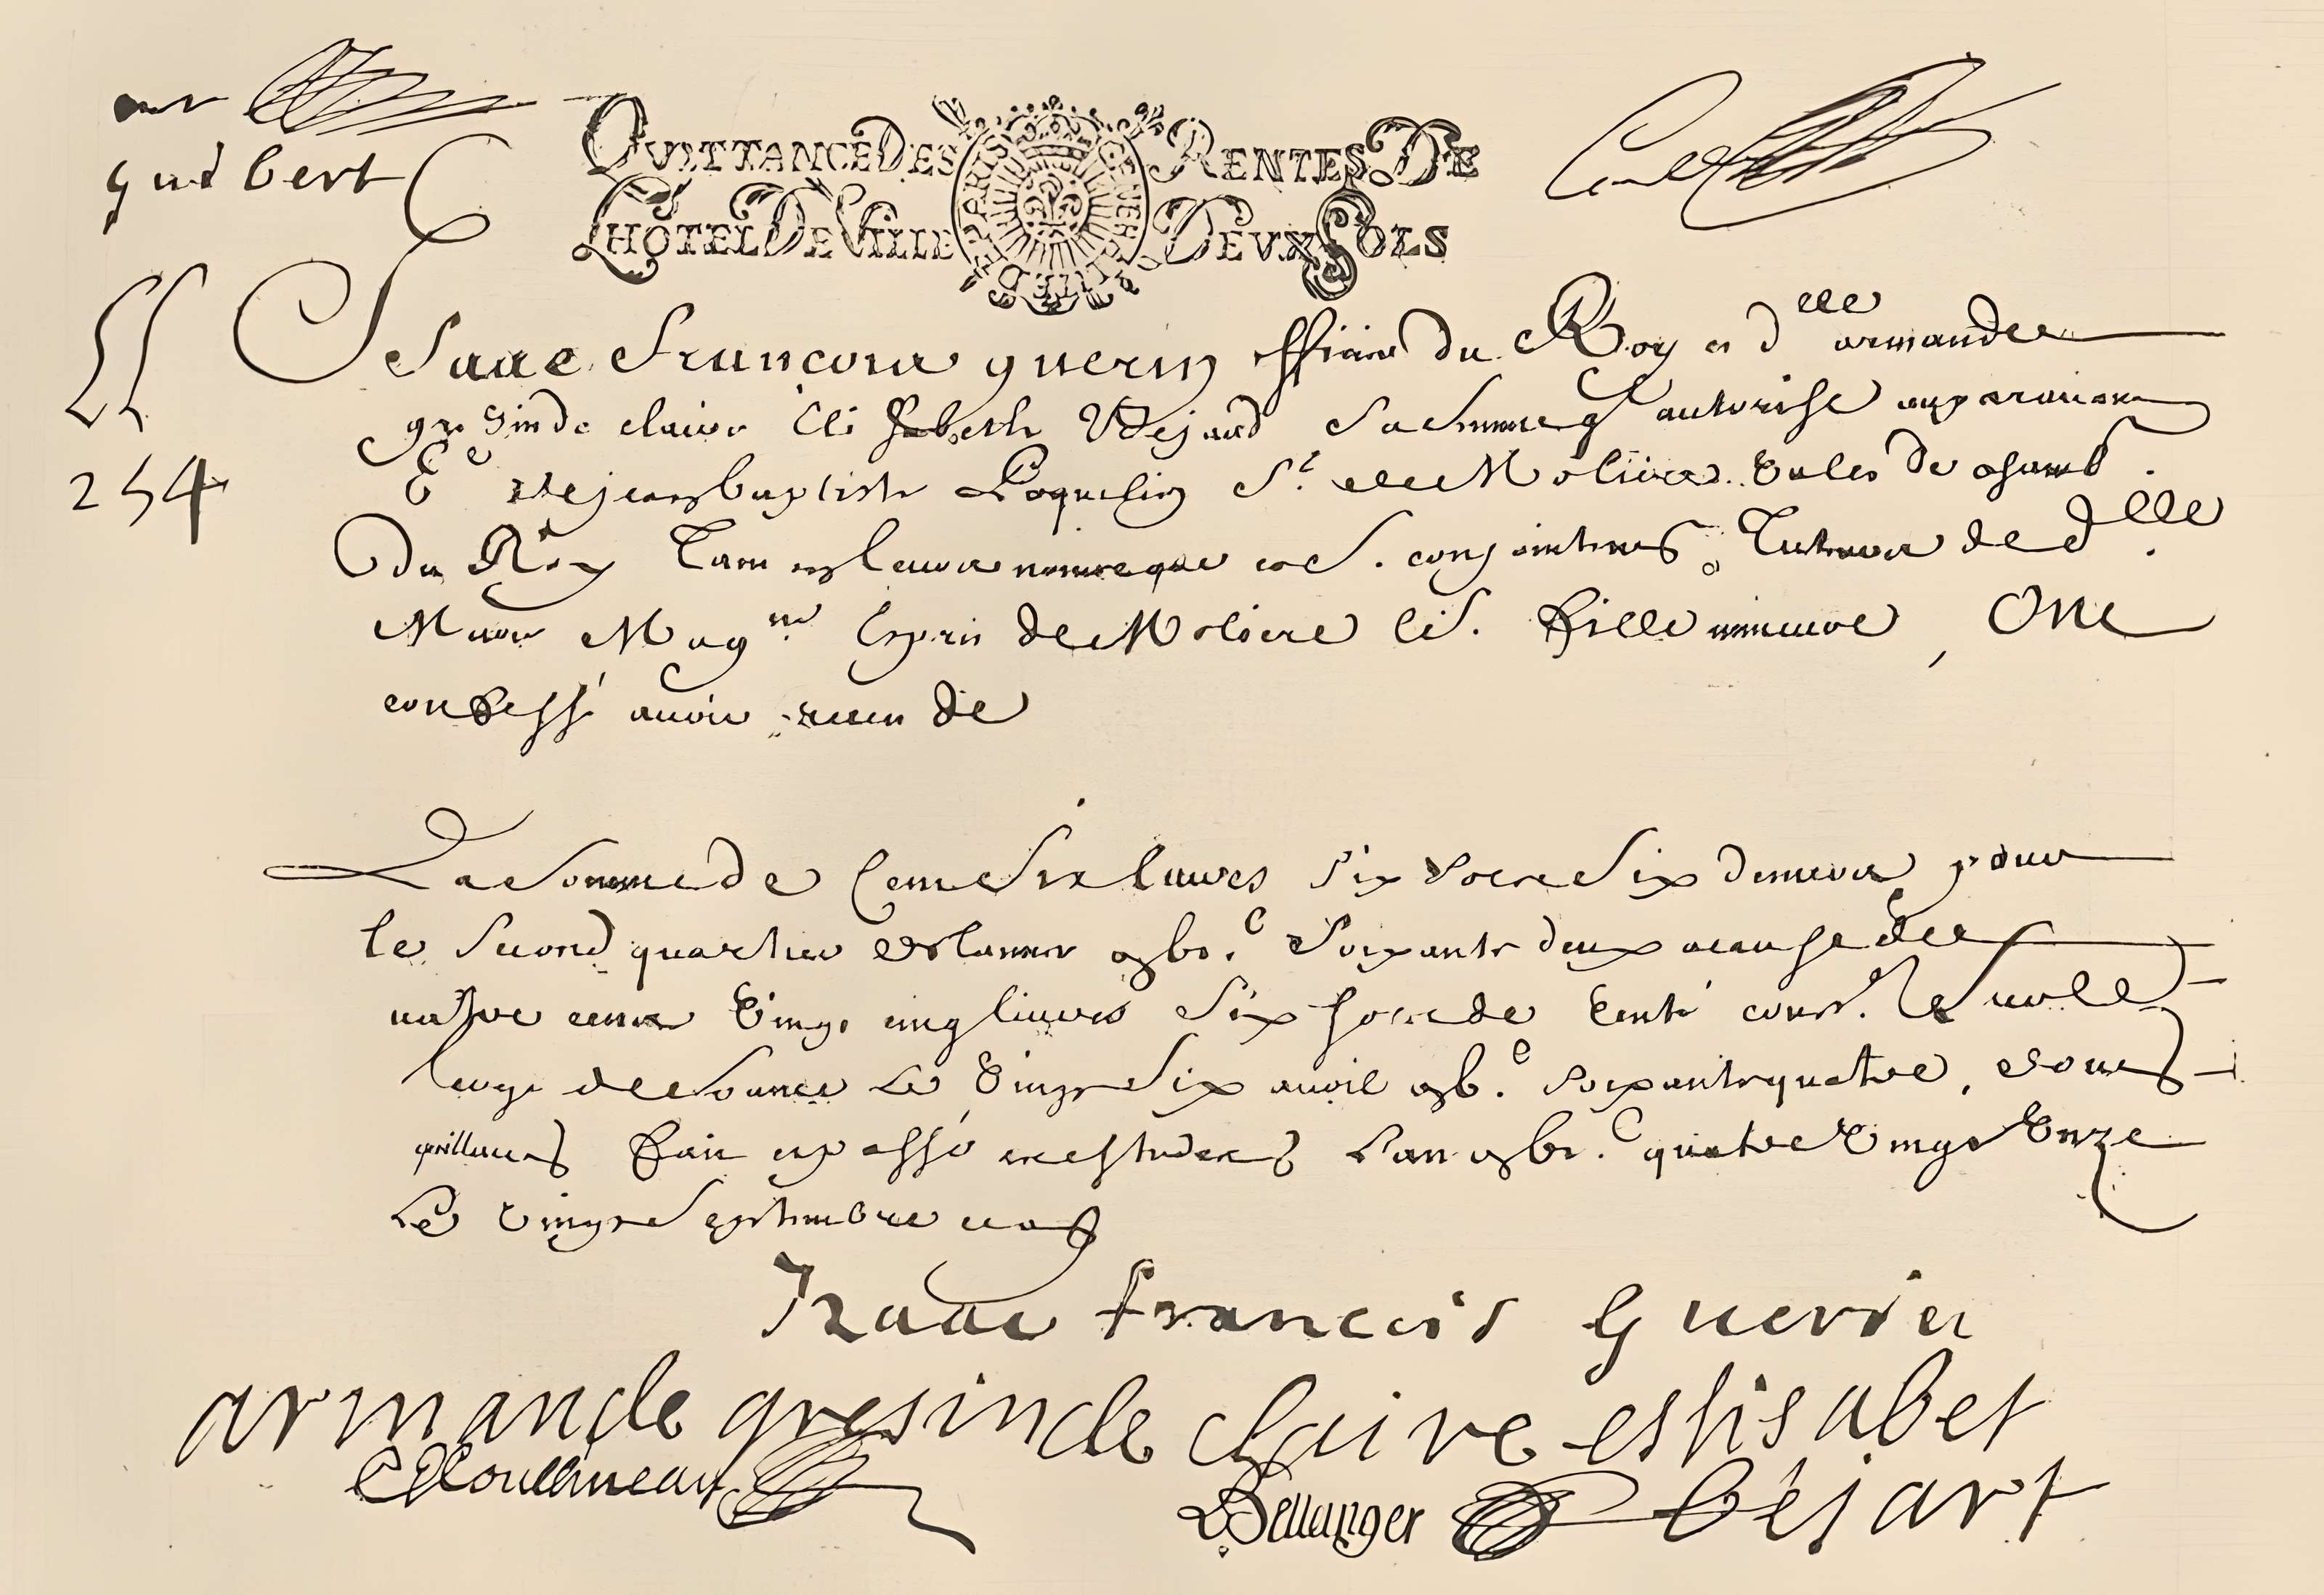 QVITTANCE DES RENTES DE
LHOTEL DE VILLE DEVX SOLS
gudbert
254
Isaac Francois guerin officier du Roy et d.lle armande
gresinde claire Elisabeth Bejard sa femme autorisé auparavant
Ve de jean baptiste Poquelin Sr. de Moliere Valet de chamb.
Du Roy Tant en leurs noms que conjointement Tuteurs de d.lle
Marie Magne Esprit de Moliere fille mineure, Ont
confessé avoir receu de
La somme de Cent six livres six sols six deniers pour
le second quartier de lannée gbi.c soixante deux a cause de
quatre cent vingt cinq livres six sols de rente const.
le vingt six avril gbi.c soixante quatre, dont
quittance fait et passé es estudes Lan gbi.c quatre vingt Onze
Le vingt Septembre
Isaac francois Guerin
armande gresinde claire eslisabet
Bellanger bejart